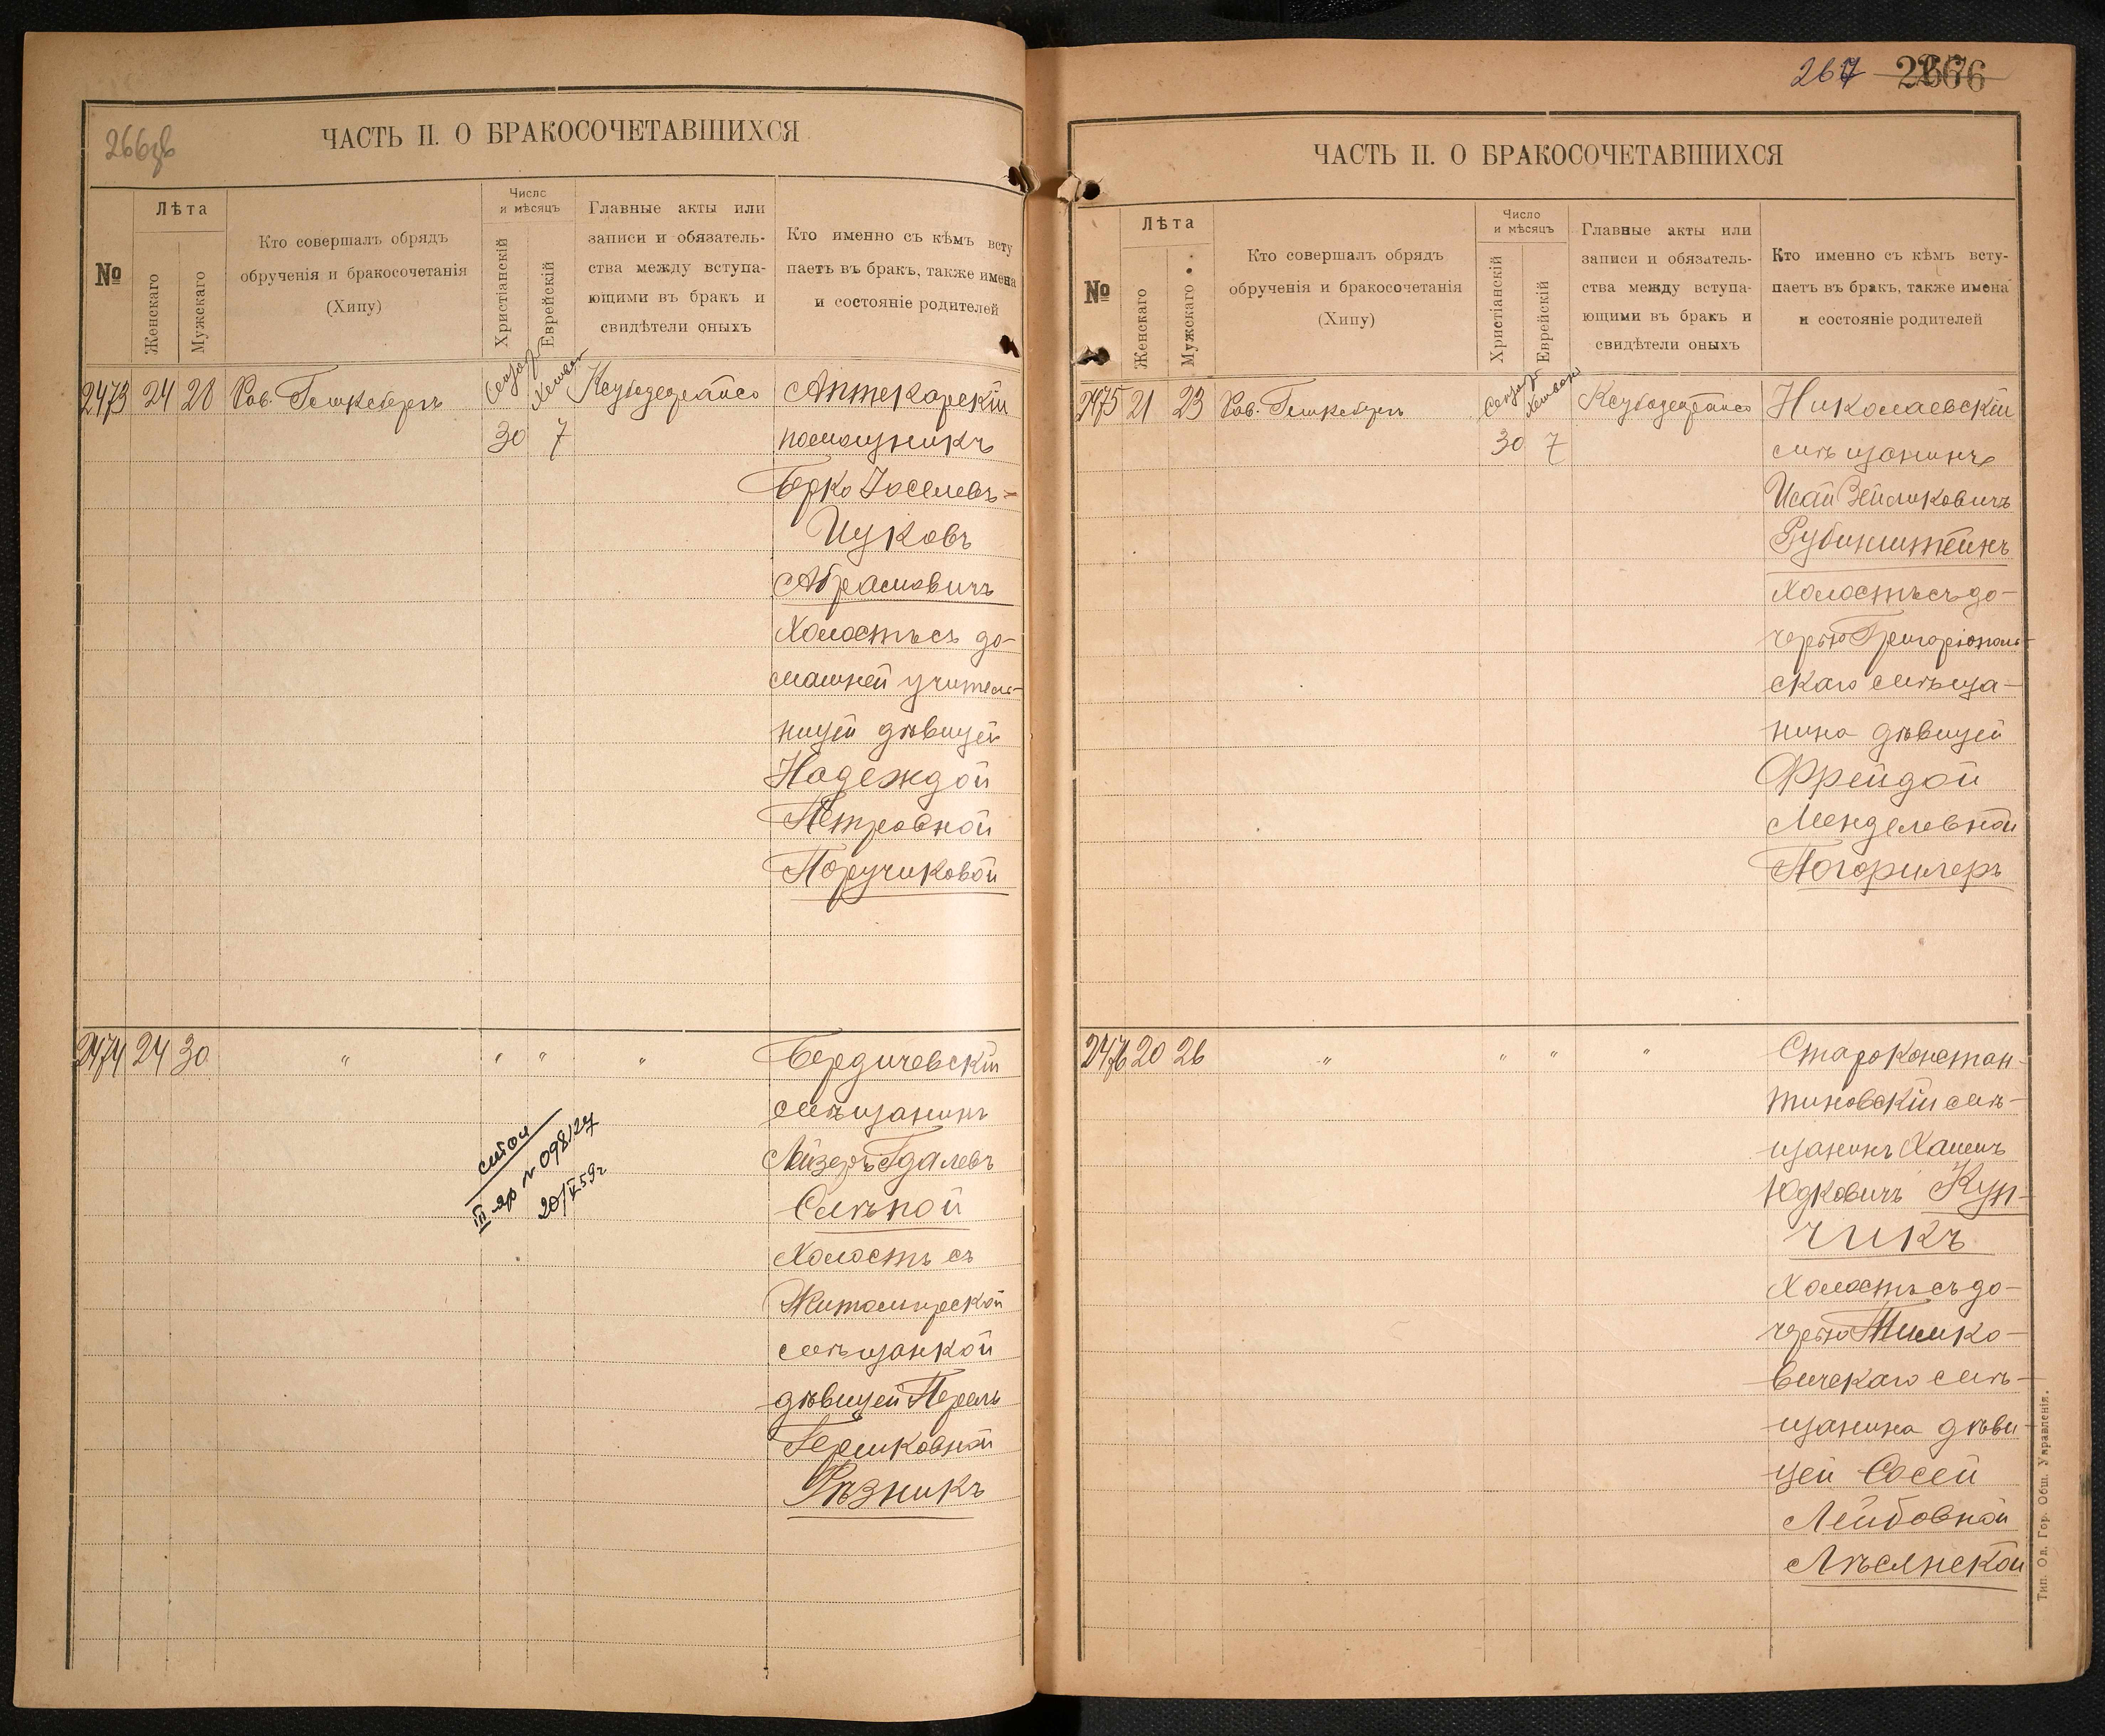 266об
ЧАСТЬ II. О БРАКОСОЧЕТАВШИХСЯ
№
Лѣта
Женскаго
Мужскаго
Кто совершалъ обрядъ
обрученія и бракосочетанія
(Хипу)
Число
и мѣсяцъ
Христіанскій
Еврейскій
Главные акты или
записи и обязатель-
ства между вступа-
ющими въ бракъ и
свидѣтели оныхъ
Кто именно съ кѣмъ всту
паетъ въ бракъ, также имена
и состояніе родителей
2473 24 28 Рав. Аптекарскій
30 7 помощникъ
Берко Іоселевъ-
Ицковъ
Абрамовичъ
Холостъ съ до-
машней учитель-
ницей дѣвицей
Надеждой
Петровной
Поручиковой
2474 24 30 " " " " Бердичевскій
мѣщанинъ
Лейзеръ Гдалевъ
Слѣпой
20/V 59г
Холостъ съ
Житомирской
мѣщанкой
дѣвицей Перель
Гершковной
Рѣзникъ
267 2666
ЧАСТЬ II. О БРАКОСОЧЕТАВШИХСЯ
№
Лѣта
Женскаго
Мужскаго
Кто совершалъ обрядъ
обрученія и бракосочетанія
(Хипу)
Число
и мѣсяцъ
Христіанскій
Еврейскій
Главные акты или
записи и обязатель-
ства между вступа-
ющими въ бракъ и
свидѣтели оныхъ
Кто именно съ кѣмъ всту-
паетъ въ бракъ, также имена
и состояніе родителей
2475 21 23 Рав. Николаевскій
30 7 мѣщанинъ
Исай Зейликовичъ
Рубинштейнъ
Холостъ съ до-
черью Григоріополь-
скаго мѣща-
нина дѣвицей
Фрейдой
Менделевной
Погорилеръ
2476 20 26 " " " " Староконстан-
тиновскій мѣ-
щанинъ Хаимъ
Юдковичъ Куп-
чикъ
Холостъ съ до-
черью Тишко-
вичскаго мѣ-
щанина дѣви-
цей Сосей
Лейбовной
Лѣсянской
Тип. Од. Гор. Общ. Управленія.